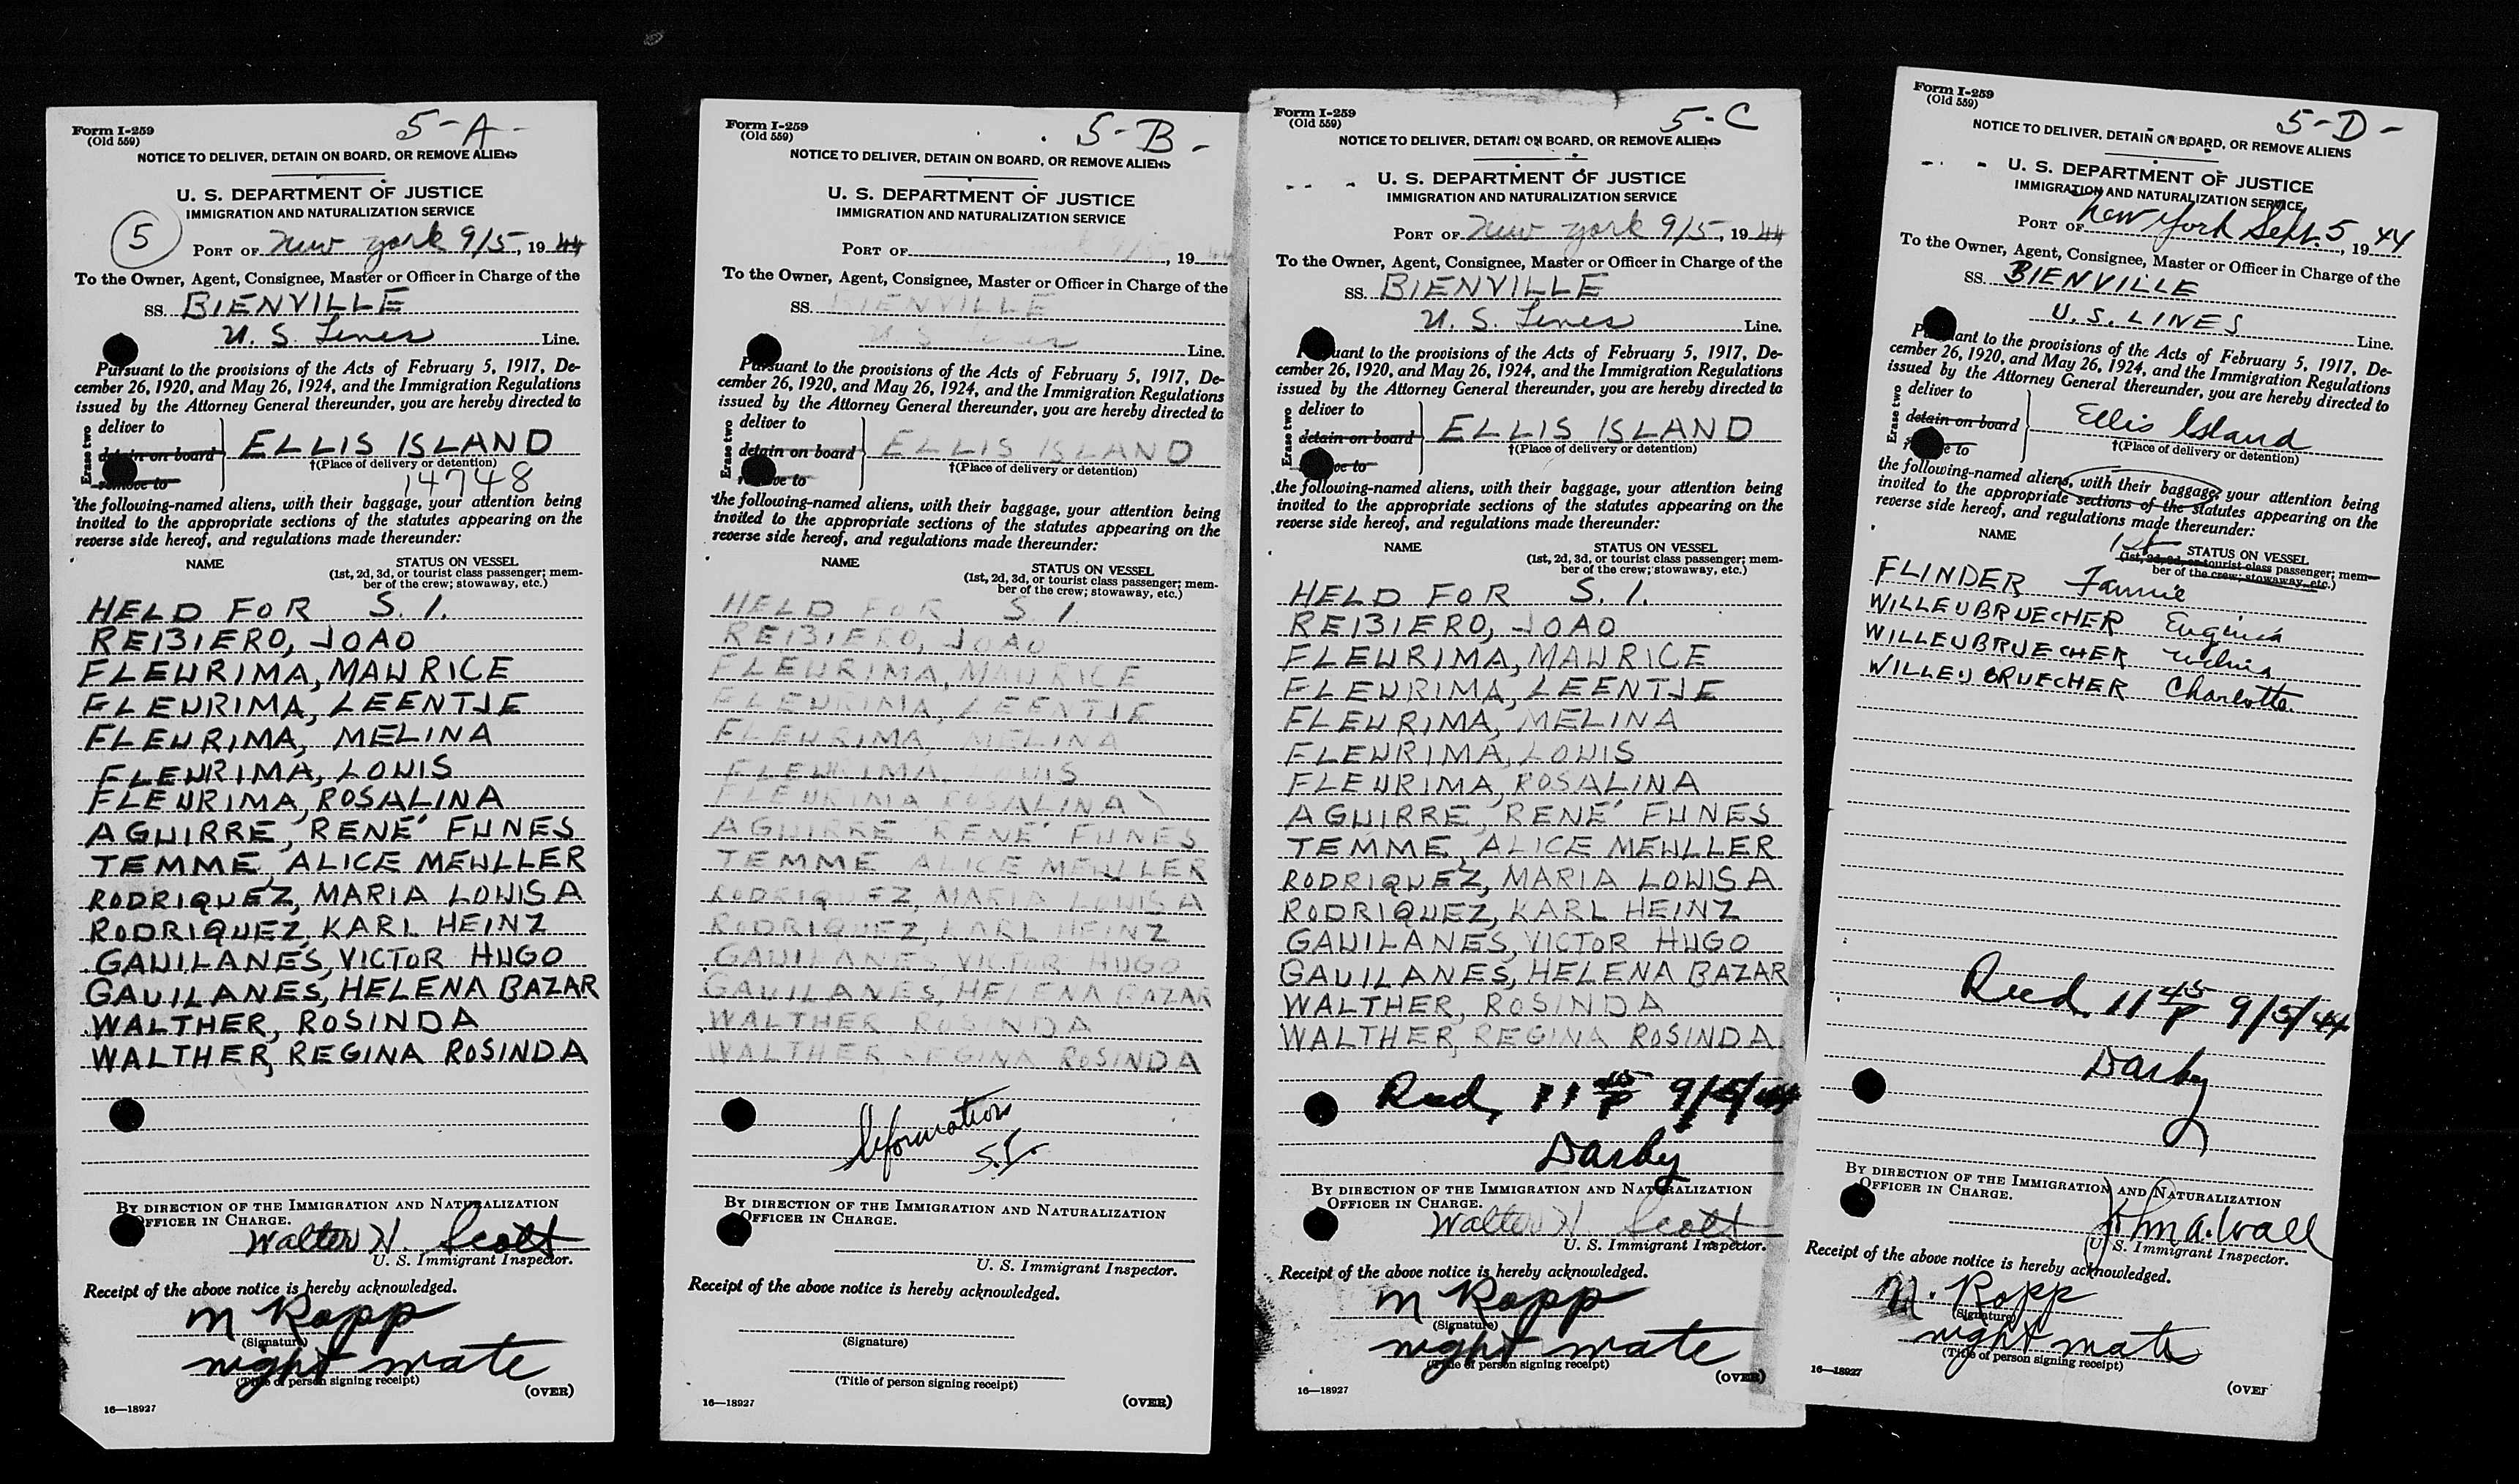 Form I-259
(Old 559)
5-A-
NOTICE TO DELIVER, DETAIN ON BOARD, OR REMOVE ALIENS
U. S. DEPARTMENT OF JUSTICE
IMMIGRATION AND NATURALIZATION SERVICE
5
PORT OF New York 9/5, 1944
To the Owner, Agent, Consignee, Master or Officer in Charge of the
SS. BIENVILLE
U. S. Lines Line.
Pursuant to the provisions of the Acts of February 5, 1917, De-
cember 26, 1920, and May 26, 1924, and the Immigration Regulations
issued by the Attorney General thereunder, you are hereby directed to
Erase two
deliver to
detain on board
remove to
ELLIS ISLAND
†(Place of delivery or detention)
14748
the following-named aliens, with their baggage, your attention being
invited to the appropriate sections of the statutes appearing on the
reverse side hereof, and regulations made thereunder:
NAME STATUS ON VESSEL
(1st, 2d, 3d, or tourist class passenger; mem-
ber of the crew; stowaway, etc.)
HELD FOR S. I.
REIBIERO, JOAO
FLEURIMA, MAURICE
FLEURIMA, LEENTJE
FLEURIMA, MELINA
FLEURIMA, LOUIS
FLEURIMA, ROSALINA
AGUIRRE, RENE' FUNES
TEMME, ALICE MEULLER
RODRIQUEZ, MARIA LOUISA
RODRIQUEZ, KARL HEINZ
GAUILANES, VICTOR HUGO
GAUILANES, HELENA BAZAR
WALTHER, ROSINDA
WALTHER, REGINA ROSINDA
BY DIRECTION OF THE IMMIGRATION AND NATURALIZATION
OFFICER IN CHARGE.
Walter H. Scott
U. S. Immigrant Inspector.
Receipt of the above notice is hereby acknowledged.
M Rapp
(Signature)
night mate
(Title of person signing receipt)
(OVER)
16—18927
Form I-259
(Old 559)
5-B-
NOTICE TO DELIVER, DETAIN ON BOARD, OR REMOVE ALIENS
U. S. DEPARTMENT OF JUSTICE
IMMIGRATION AND NATURALIZATION SERVICE
PORT OF 9/5, 1944
To the Owner, Agent, Consignee, Master or Officer in Charge of the
SS. BIENVILLE
U. S. Lines Line.
Pursuant to the provisions of the Acts of February 5, 1917, De-
cember 26, 1920, and May 26, 1924, and the Immigration Regulations
issued by the Attorney General thereunder, you are hereby directed to
Erase two
deliver to
detain on board
remove to
ELLIS ISLAND
†(Place of delivery or detention)
the following-named aliens, with their baggage, your attention being
invited to the appropriate sections of the statutes appearing on the
reverse side hereof, and regulations made thereunder:
NAME STATUS ON VESSEL
(1st, 2d, 3d, or tourist class passenger; mem-
ber of the crew; stowaway, etc.)
HELD FOR S. I
REIBIERO, JOAO
FLEURIMA, MAURICE
FLEURIMA, LEENTJE
FLEURIMA, MELINA
FLEURIMA, LOUIS
FLEURIMA ROSALINA
AGUIRRE RENE' FUNES
TEMME ALICE MEULLER
RODRIQUEZ, MARIA LOUISA
RODRIQUEZ, KARL HEINZ
GAUILANES VICTOR HUGO
GAUILANES, HELENA BAZAR
WALTHER ROSINDA
WALTHER REGINA ROSINDA
Information
S.I.
BY DIRECTION OF THE IMMIGRATION AND NATURALIZATION
OFFICER IN CHARGE.
U. S. Immigrant Inspector.
Receipt of the above notice is hereby acknowledged.
(Signature)
(Title of person signing receipt)
16—18927
(OVER)
Form I-259
(Old 559)
5-C
NOTICE TO DELIVER, DETAIN ON BOARD, OR REMOVE ALIENS
U. S. DEPARTMENT OF JUSTICE
IMMIGRATION AND NATURALIZATION SERVICE
PORT OF New York 9/5, 1944
To the Owner, Agent, Consignee, Master or Officer in Charge of the
SS. BIENVILLE
U. S. Lines Line.
Pursuant to the provisions of the Acts of February 5, 1917, De-
cember 26, 1920, and May 26, 1924, and the Immigration Regulations
issued by the Attorney General thereunder, you are hereby directed to
Erase two
deliver to
detain on board
remove to
ELLIS ISLAND
†(Place of delivery or detention)
the following-named aliens, with their baggage, your attention being
invited to the appropriate sections of the statutes appearing on the
reverse side hereof, and regulations made thereunder:
NAME STATUS ON VESSEL
(1st, 2d, 3d, or tourist class passenger; mem-
ber of the crew; stowaway, etc.)
HELD FOR S. I.
REIBIERO, JOAO
FLEURIMA, MAURICE
FLEURIMA, LEENTJE
FLEURIMA, MELINA
FLEURIMA, LOUIS
FLEURIMA, ROSALINA
AGUIRRE, RENE' FUNES
TEMME, ALICE MEULLER
RODRIQUEZ, MARIA LOUISA
RODRIQUEZ, KARL HEINZ
GAUILANES, VICTOR HUGO
GAUILANES, HELENA BAZAR
WALTHER, ROSINDA
WALTHER, REGINA ROSINDA
Recd. 11 45 P 9/5/44
Darby
BY DIRECTION OF THE IMMIGRATION AND NATURALIZATION
OFFICER IN CHARGE.
Walter H. Scott
U. S. Immigrant Inspector.
Receipt of the above notice is hereby acknowledged.
M Rapp
(Signature)
night mate
(Title of person signing receipt)
(OVER)
16—18927
Form I-259
(Old 559)
5-D-
NOTICE TO DELIVER, DETAIN ON BOARD, OR REMOVE ALIENS
U. S. DEPARTMENT OF JUSTICE
IMMIGRATION AND NATURALIZATION SERVICE
PORT OF New York Sept. 5, 1944
To the Owner, Agent, Consignee, Master or Officer in Charge of the
SS. BIENVILLE
U. S. LINES Line.
Pursuant to the provisions of the Acts of February 5, 1917, De-
cember 26, 1920, and May 26, 1924, and the Immigration Regulations
issued by the Attorney General thereunder, you are hereby directed to
Erase two
deliver to
detain on board
remove to
Ellis Island
†(Place of delivery or detention)
the following-named aliens, with their baggage, your attention being
invited to the appropriate sections of the statutes appearing on the
reverse side hereof, and regulations made thereunder:
NAME STATUS ON VESSEL
(1st, 2d, 3d, or tourist class passenger; mem-
ber of the crew; stowaway, etc.)
FLINDER Fannie
WILLEUBRUECHER Euginia
WILLEUBRUECHER
WILLEUBRUECHER Charlotte
Recd. 11 45 P 9/5/44
Darby
BY DIRECTION OF THE IMMIGRATION AND NATURALIZATION
OFFICER IN CHARGE.
John A. Wall
U. S. Immigrant Inspector.
Receipt of the above notice is hereby acknowledged.
M. Rapp
(Signature)
night mate
(Title of person signing receipt)
16—18927
(OVER